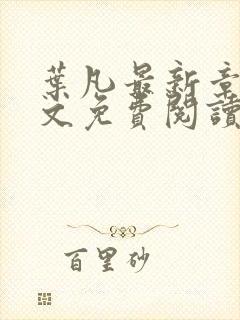 葉凡最新章
文免費閱讀
百里砂